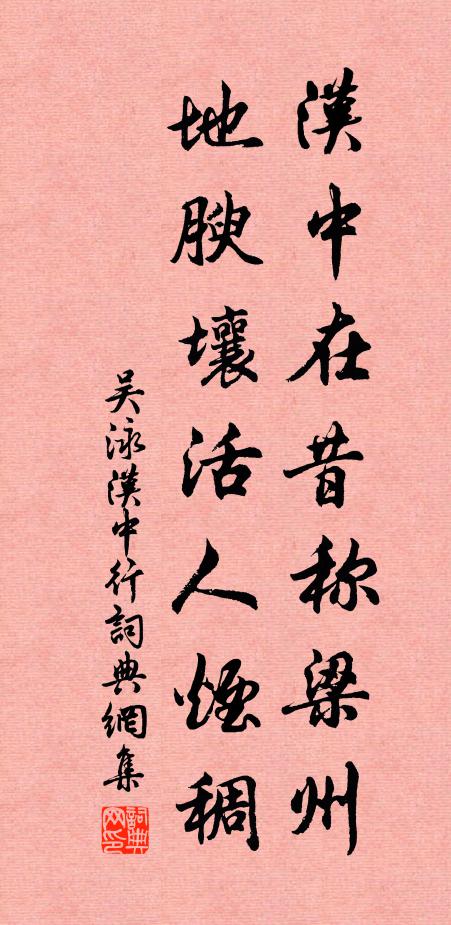 漢中在昔称梁州
地腴壤活人煙稠
吴泳漢中行詞典網集
詞典网印